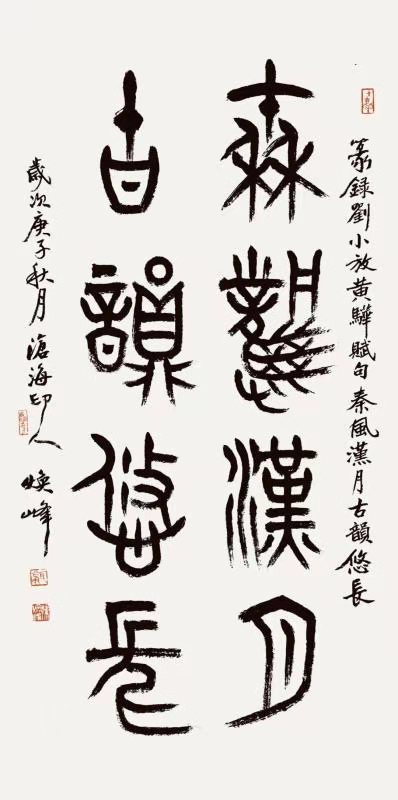 篆錄劉小放黃驊賦句秦風漢月古韻悠長
秦風漢月
古韻悠長
歲次庚子秋月滄海印人煥峰